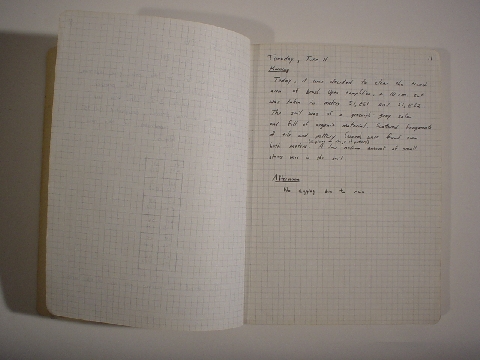 Tuesday, June 11
Morning
Today, it was decided to clear the mixed
area of brush. Upon completion, a 10 cm cut
was taken in metres
The soil was of a greenish grey color
and full of organic material. Scattered fragments
of tile and pottery were found
with metres A low medium amount of small
stones was in the soil
Afternoon
No digging due to rain